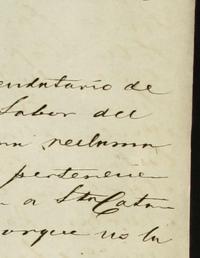 entatario de
Labor del
reclama
pertenece
a Sta Cata-
porque no la